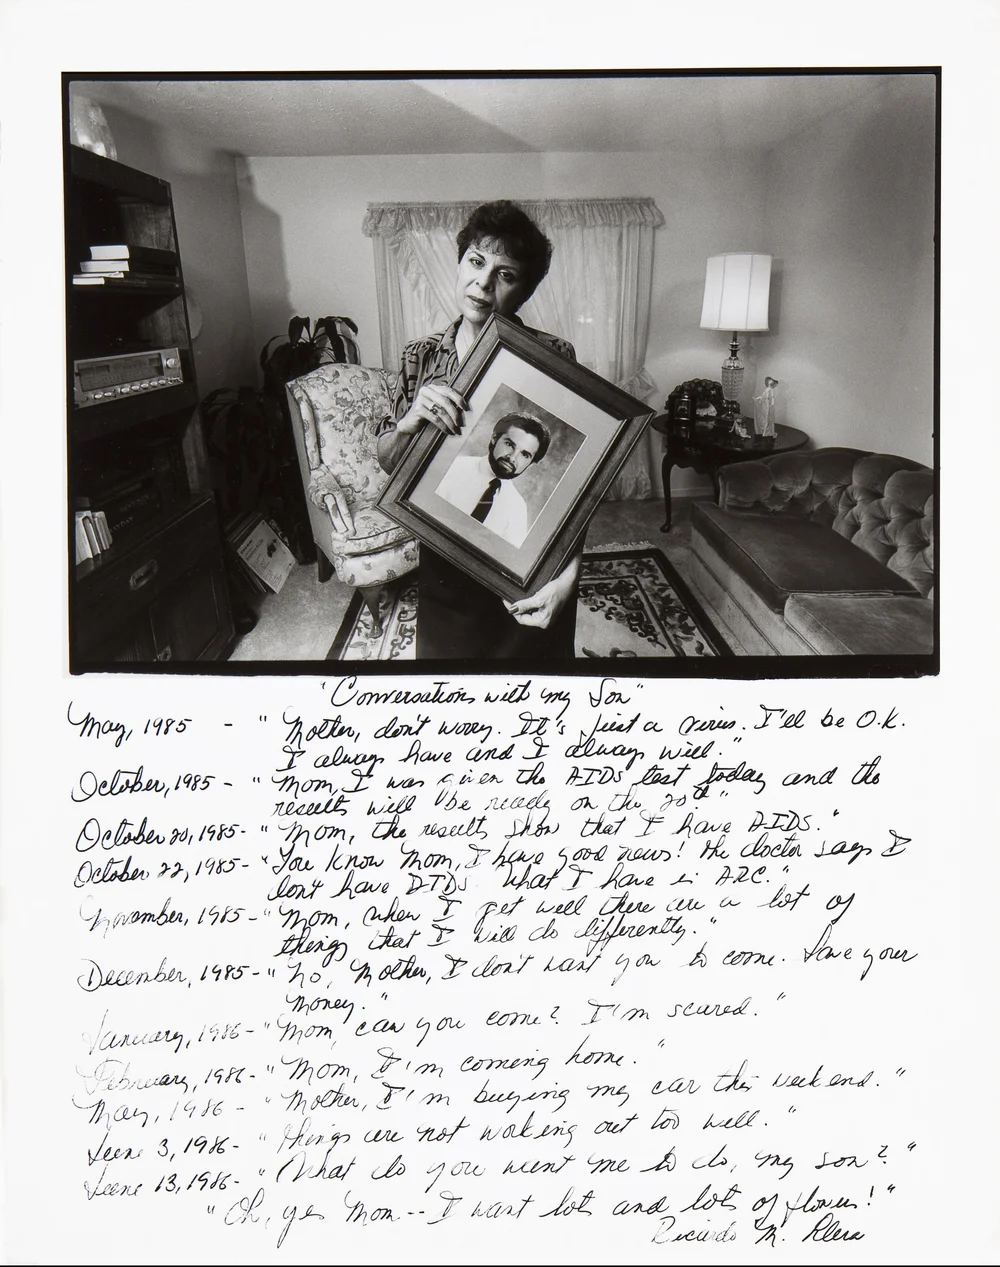 "Conversations with my Son"
May, 1985 - "Mother, don't worry. It's just a virus. I'll be O.K.
I always have and I always will."
October, 1985 - "Mom, I was given the AIDS test today and the
results will be ready on the 20th"
October 20, 1985 - "Mom, the results show that I have AIDS."
October 22, 1985 - "You know Mom, I have good news! the doctor says I
don't have AIDS. What I have is ARC."
November, 1985 - "Mom, when I get well there are a lot of
things that I will do differently."
December, 1985 - "No, Mother, I don't want you to come. Save your
money."
January, 1986 - "Mom, can you come? I'm scared."
February, 1986 - "Mom, I'm coming home."
May, 1986 - "Mother, I'm buying my car this weekend."
June 3, 1986 - "things are not working out too well."
June 13, 1986 - "What do you want me to do, my son?"
"Oh, yes Mom -- I want lots and lots of flowers!"
Ricardo M.